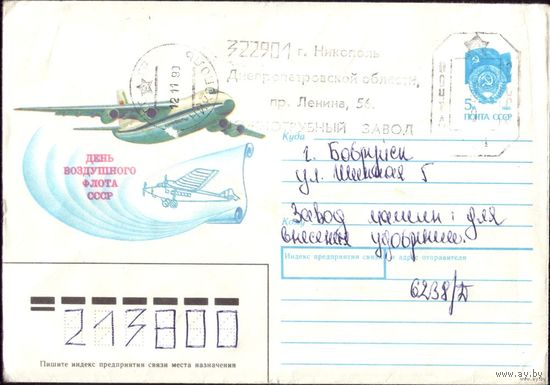 322901 г. Никополь
Днепропетровской области,
пр. Ленина, 56.
ЗАВОД
12 11 90
5к
ПОЧТА СССР
ДЕНЬ
ВОЗДУШНОГО
ФЛОТА
СССР
Куда
г. Бобруйск
ул. Шинная 5
Кому
Завод машин для
внесения удобрений.
Индекс предприятия связи и адрес отправителя
6238/Д
213800
Пишите индекс предприятия связи места назначения
www.ay.by